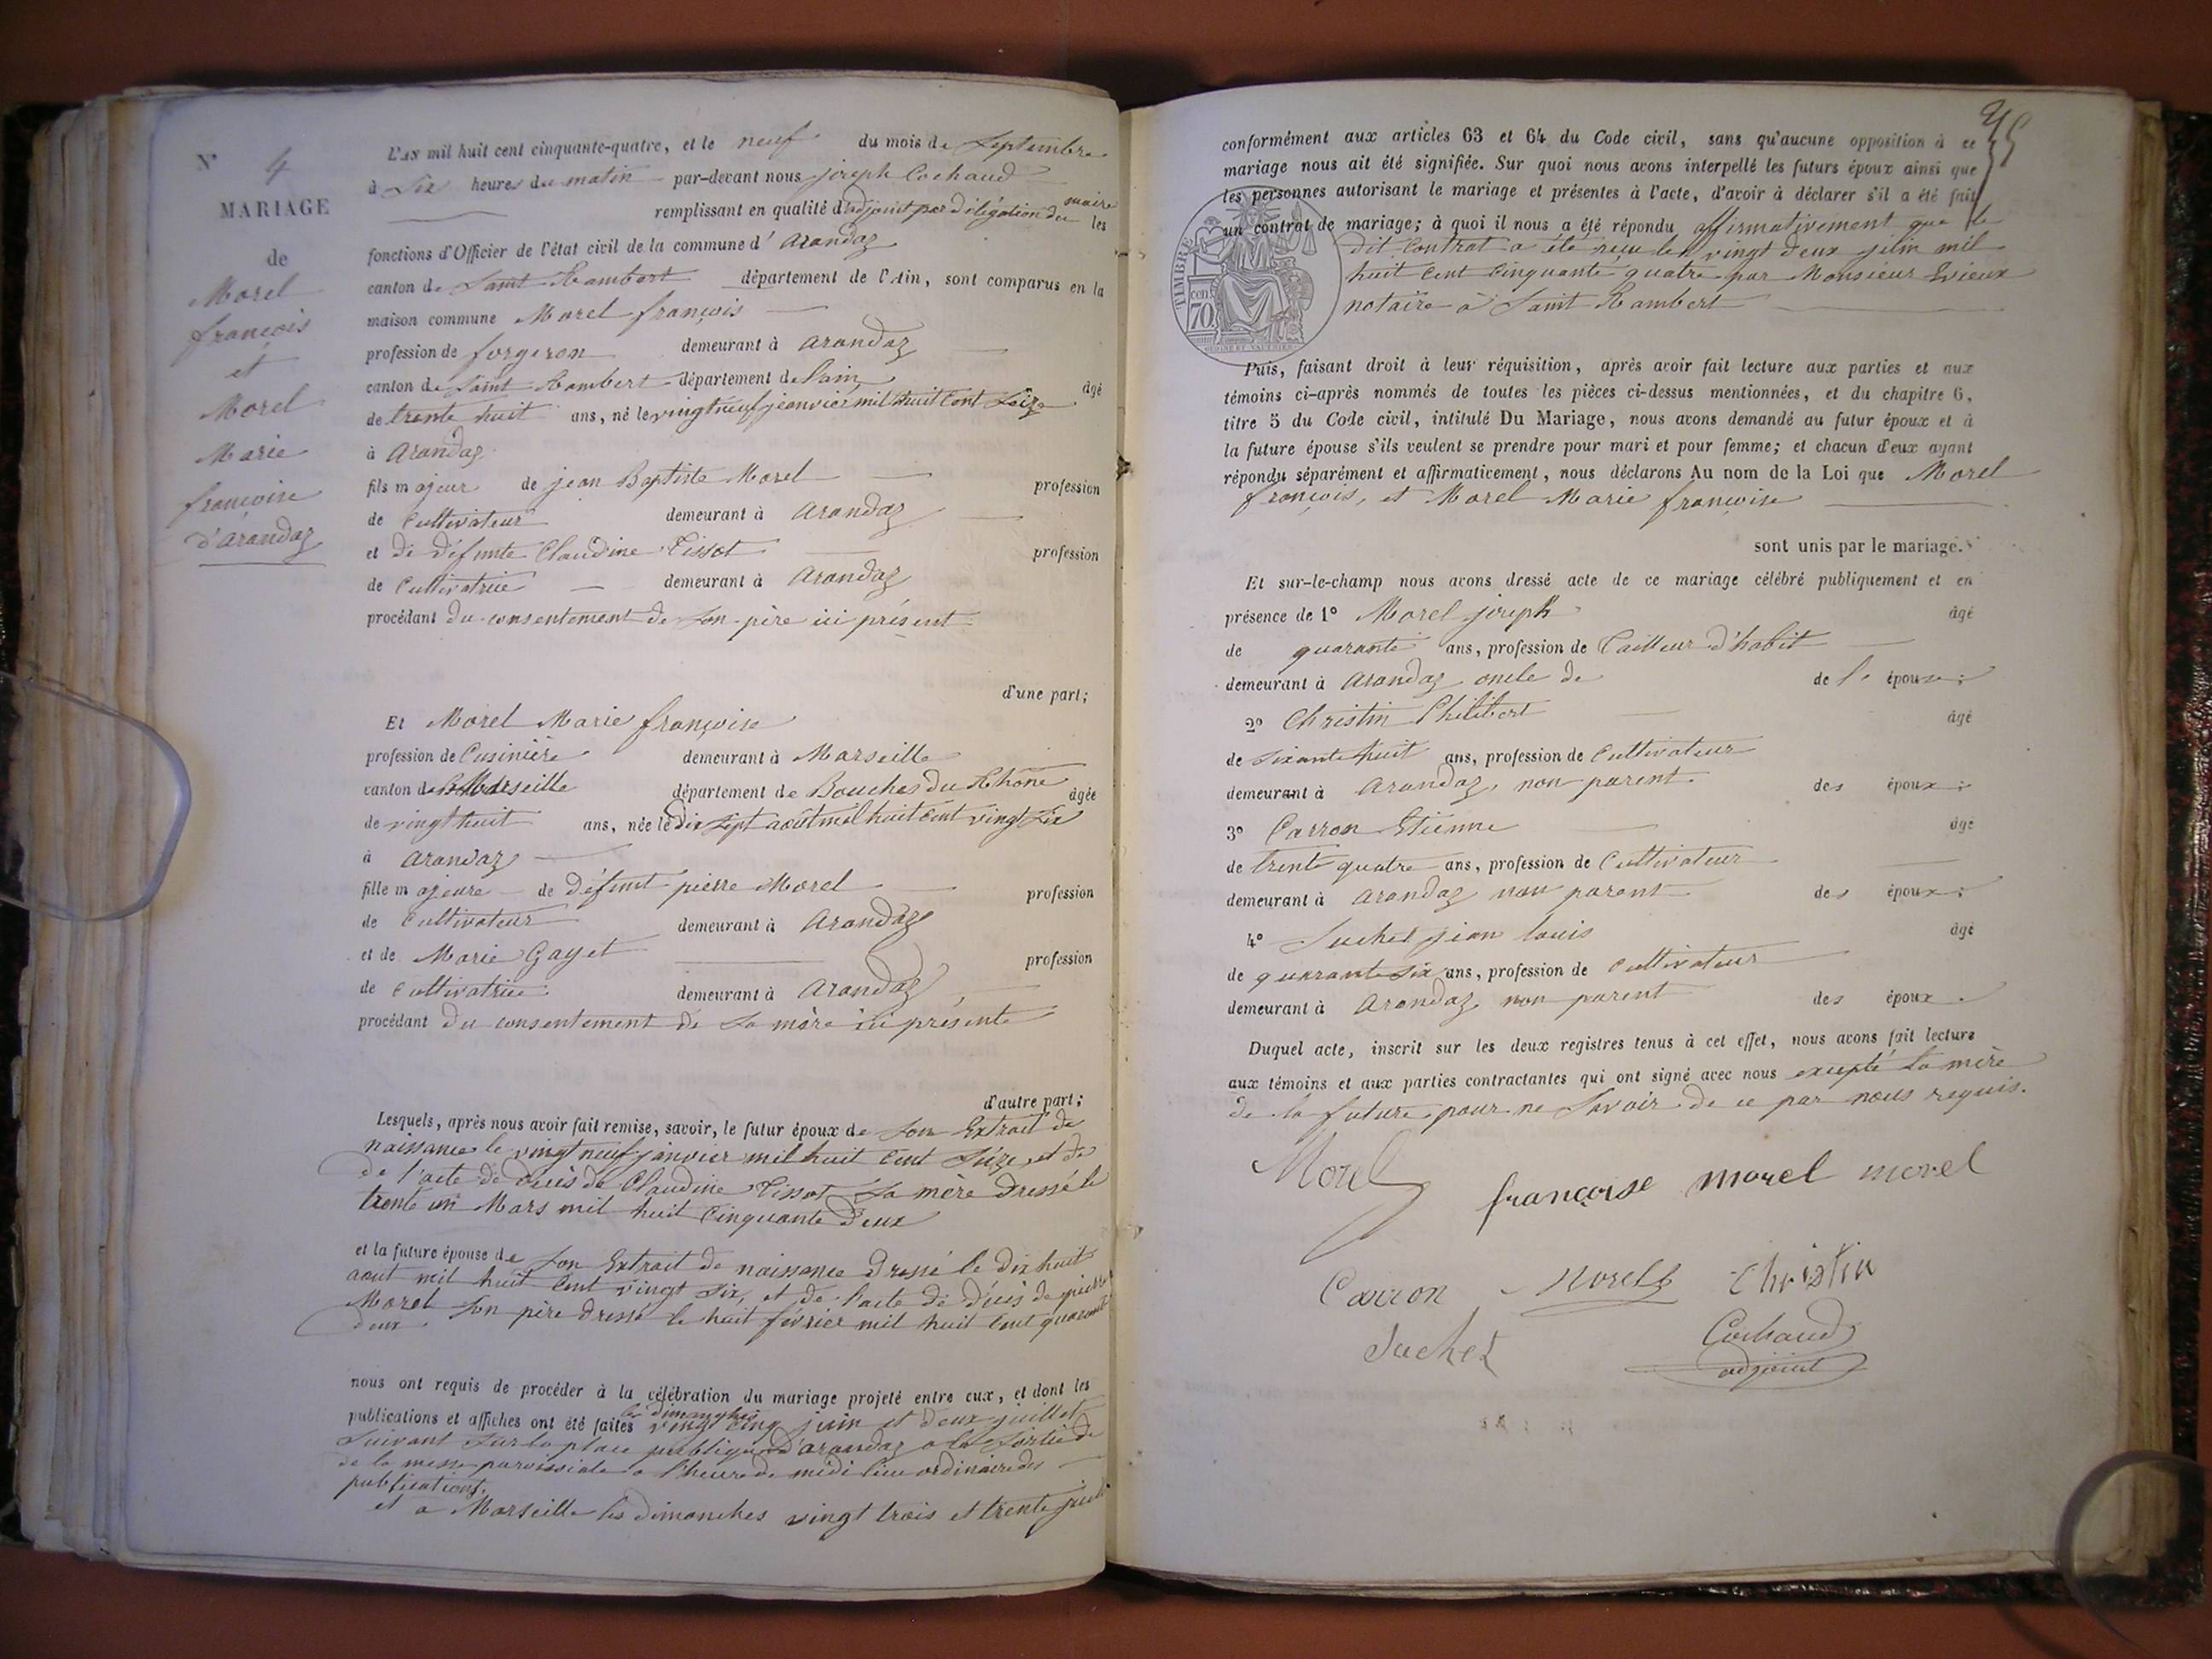 N° 4
MARIAGE
de
Morel
françois
et
Morel
Marie
françoise
d'arandaz
L'AN mil huit cent cinquante-quatre, et le neuf du mois de Septembre
à Six heures du matin par-devant nous joseph Cochaud
remplissant en qualité d'adjoint par délégation du maire les
fonctions d'Officier de l'état civil de la commune d' arandaz
canton de Saint Rambert département de l'Ain, sont comparus en la
maison commune Morel françois
profession de forgeron demeurant à arandaz
canton de Saint Rambert département de l'ain âgé
de trente huit ans, né le vingt neuf janvier mil huit Cent Seize
à arandaz
fils majeur de jean Baptiste Morel profession
de Cultivateur demeurant à arandaz
et de défunte Claudine Tissot profession
de Cultivatrice demeurant à arandaz
procédant du consentement de Son père ici présent
d'une part;
Et Morel Marie françoise
profession de Cusinière demeurant à Marseille
canton de Marseille département de Bouches du Rhône âgée
de vingt huit ans, née le Dix Sept août mil huit Cent vingt Six
à arandaz
fille majeure de défunt pierre Morel profession
de Cultivateur demeurant à arandaz
et de Marie Gayet profession
de Cultivatrice demeurant à arandaz
procédant du consentement de Sa mère ici présente
d'autre part;
Lesquels, après nous avoir fait remise, savoir, le futur époux de Son Extrait de
naissance le vingt neuf janvier mil huit Cent Seize, et de
de l'acte de décès de Claudine Tissot Sa mère Dressé le
trente un Mars mil huit Cinquante Deux
et la future épouse de Son Extrait de naissance Dressé le Dix huit
aout mil huit Cent vingt Six, et de l'acte de décès de pierre
Morel Son père Dressé le huit février mil huit Cent quarante
Deux.
nous ont requis de procéder à la célébration du mariage projeté entre eux, et dont les
publications et affiches ont été faites les dimanches vingt Cinq juin et Deux juillet
Suivant Sur la place publique d'arandaz a la Sortie de
de la messe paroissiale a l'heure de midi lieu ordinaire des
publications.
et a Marseille les dimanches vingt trois et trente juillet
conformément aux articles 63 et 64 du Code civil, sans qu'aucune opposition à ce
mariage nous ait été signifiée. Sur quoi nous avons interpellé les futurs époux ainsi que
les personnes autorisant le mariage et présentes à l'acte, d'avoir à déclarer s'il a été fait
un contrat de mariage; à quoi il nous a été répondu affirmativement que le
dit Contrat a été reçu le vingt Deux juin mil
huit Cent Cinquante quatre par Monsieur
notaire à Saint Rambert
TIMBRE
cen.
70
Puis, faisant droit à leur réquisition, après avoir fait lecture aux parties et aux
témoins ci-après nommés de toutes les pièces ci-dessus mentionnées, et du chapitre 6,
titre 5 du Code civil, intitulé Du Mariage, nous avons demandé au futur époux et à
la future épouse s'ils veulent se prendre pour mari et pour femme; et chacun d'eux ayant
répondu séparément et affirmativement, nous déclarons Au nom de la Loi que Morel
françois, et Morel Marie françoise
sont unis par le mariage.
Et sur-le-champ nous avons dressé acte de ce mariage célébré publiquement et en
présence de 1° Morel joseph âgé
de quarante ans, profession de Tailleur d'habit
demeurant à arandaz oncle de de l' épouse;
2° Christin Philibert âgé
de Sixante huit ans, profession de Cultivateur
demeurant à arandaz, non parent des époux;
3° Carron Etienne âgé
de trente quatre ans, profession de Cultivateur
demeurant à arandaz non parent des époux;
4° Suchet jean louis âgé
de quarante Six ans, profession de Cultivateur
demeurant à arandaz non parent des époux.
Duquel acte, inscrit sur les deux registres tenus à cet effet, nous avons fait lecture
aux témoins et aux parties contractantes qui ont signé avec nous excepté la mère
de la future pour ne Savoir de ce par nous requis.
Morel françoise morel morel
Carron Morel Christin
Suchet Cochaud
adjoint